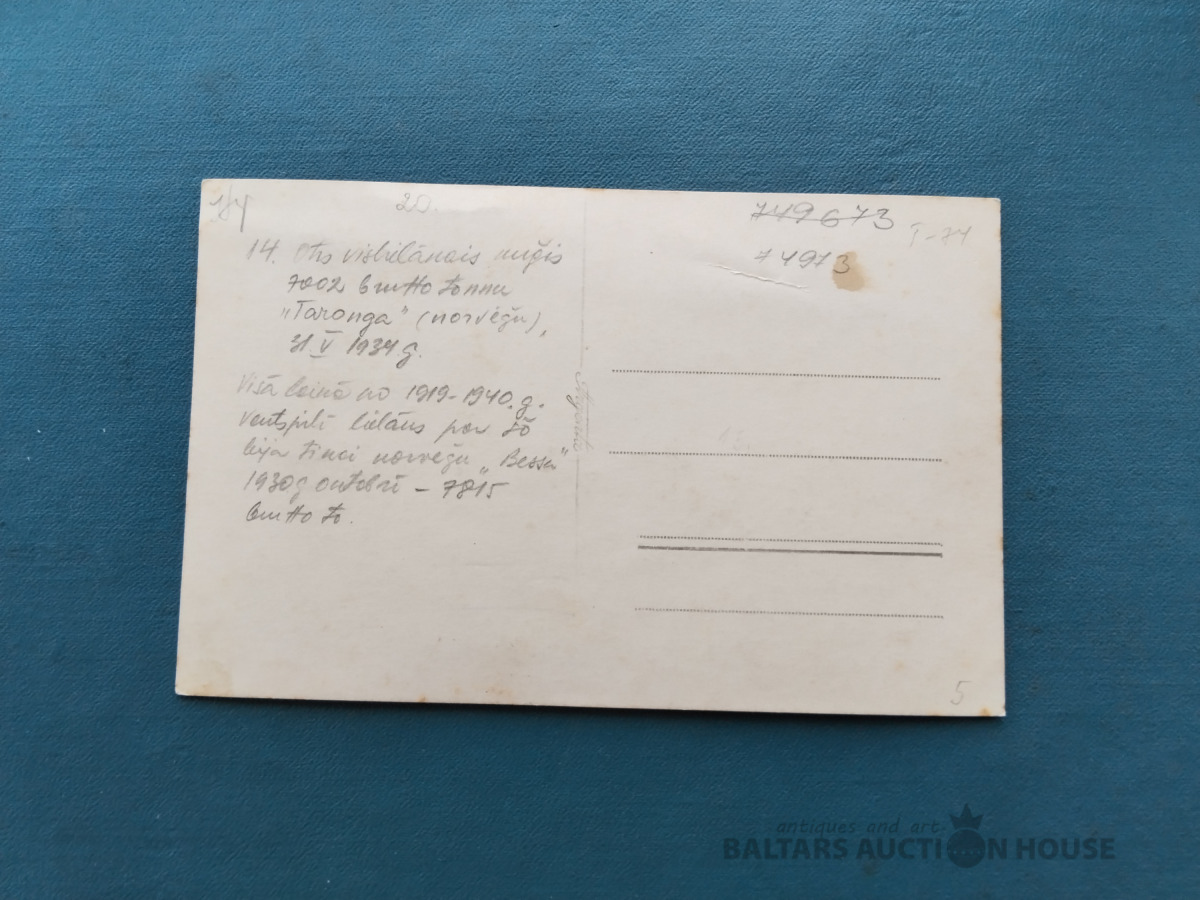 20.
749673
T-74
74973
14. Otrs vislielānais kuģis
7002 brutto tonnu
"Taronga" (norvēģu),
31 V 1934 g.
Visā laikā no 1919-1940. g.
Ventspilī lielāks par šo
bija tikai norvēģu "Bessa"
1930g oktobrī - 7815
brutto to.
5
antiques and art
BALTARS AUCTION HOUSE